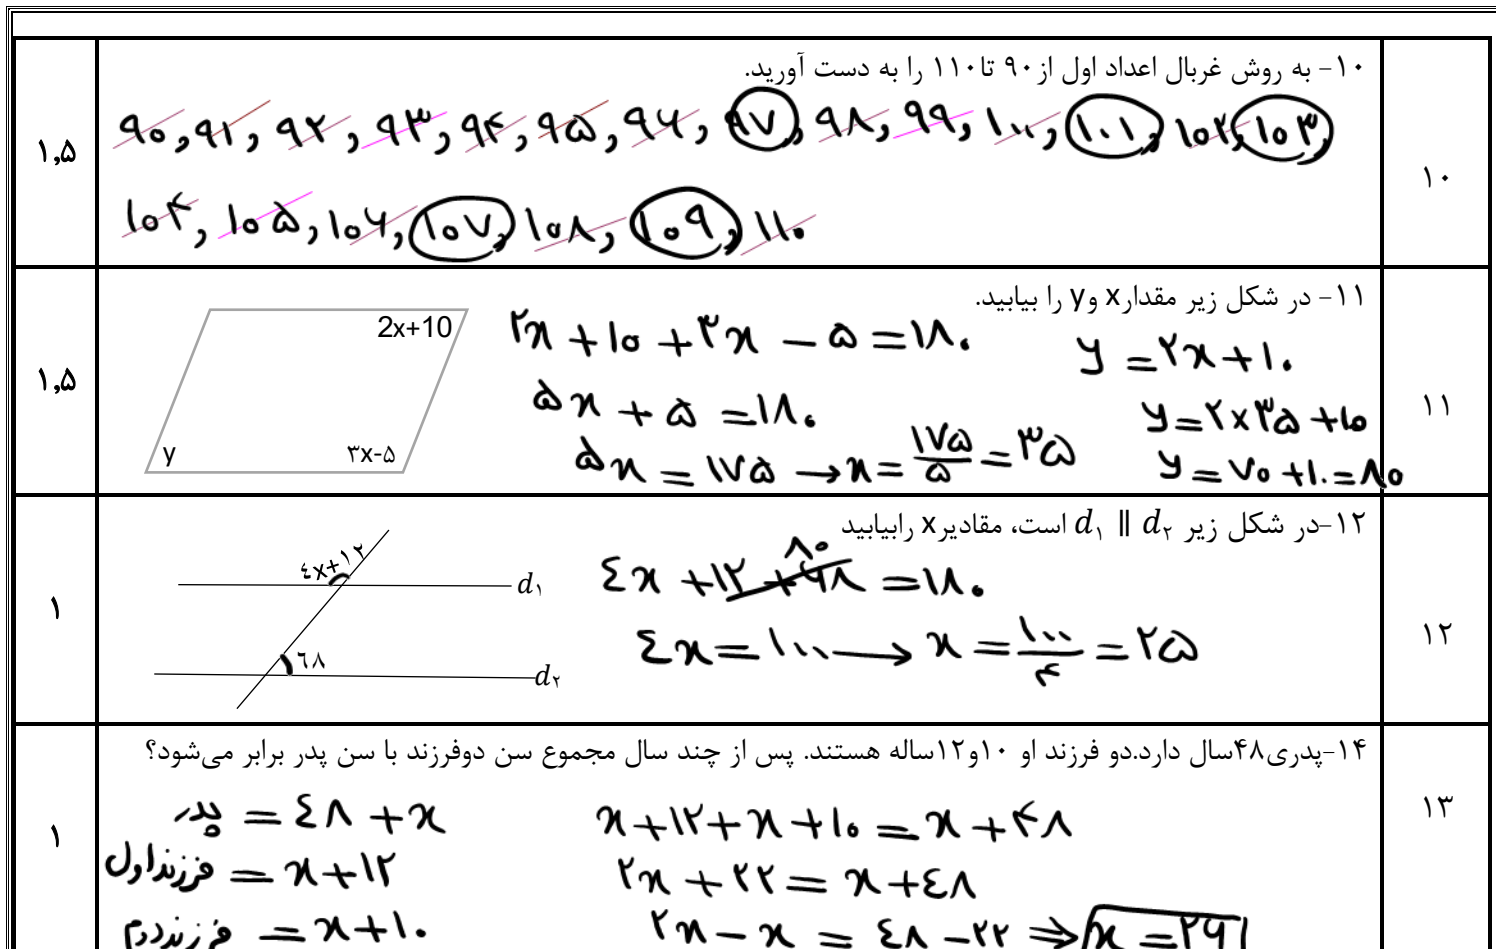 ۱۰- به روش غربال اعداد اول از ۹۰ تا ۱۱۰ را به دست آورید.
۱۰
۱,۵
۹۰, ۹۱, ۹۲, ۹۳, ۹۴, ۹۵, ۹۶, ۹۷, ۹۸, ۹۹, ۱۰۰, ۱۰۱, ۱۰۲, ۱۰۳,
۱۰۴, ۱۰۵, ۱۰۶, ۱۰۷, ۱۰۸, ۱۰۹, ۱۱۰
۱۱- در شکل زیر مقدار x و y را بیابید.
۱۱
۱,۵
2x+10
y
۳x-۵
۲x + ۱۰ + ۳x - ۵ = ۱۸۰
۵x + ۵ = ۱۸۰
۵x = ۱۷۵ → x = ۱۷۵/۵ = ۳۵
y = ۲x + ۱۰
y = ۲×۳۵ + ۱۰
y = ۷۰ + ۱۰ = ۸۰
۱۲-در شکل زیر d₁ ∥ d₂ است، مقادیر x رابیابید
۱۲
۱
٤x+۱۲
d₁
٦۸
d₂
۸۰
٤x + ۱۲ + ۶۸ = ۱۸۰
٤x = ۱۰۰ → x = ۱۰۰/۴ = ۲۵
۱۴-پدری۴۸سال دارد.دو فرزند او ۱۰و۱۲ساله هستند. پس از چند سال مجموع سن دوفرزند با سن پدر برابر می‌شود؟
۱۳
۱
پدر = ٤۸ + x
فرزند اول = x + ۱۲
فرزند دوم = x + ۱۰
x + ۱۲ + x + ۱۰ = x + ۴۸
۲x + ۲۲ = x + ٤۸
۲x - x = ٤۸ - ۲۲ ⇒ x = ۲۶